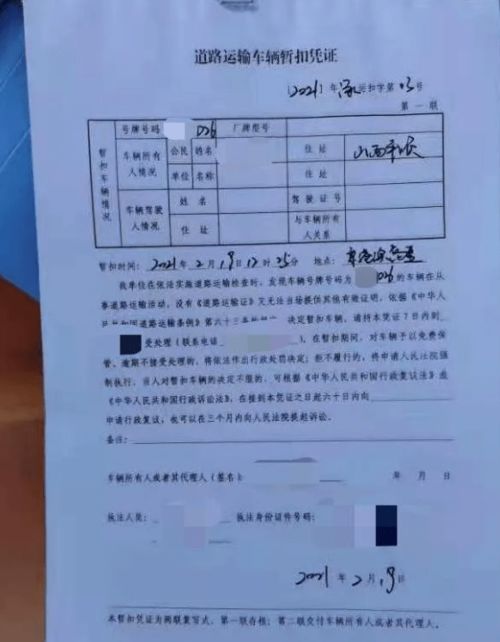 道路运输车辆暂扣凭证
(2021)年 运扣字第03号
第一联
暂扣车辆情况
号牌号码 026 厂牌型号
车辆所有人情况 公民 姓名 住址 山西平顺
单位 名称 住址
车辆驾驶人情况 姓名 驾驶证号
住址 与车辆所有人关系
暂扣时间：2021年2月19日12时25分 地点：
我单位在依法实施道路运输检查时，发现车辆号牌号码为 026的车在从
事道路运输活动，没有《道路运输证》又无法当场提供其他有效证明，依据《中华人
民共和国道路运输条例》第六十三条的规定，决定暂扣车辆，请持本凭证7日内到
受处理（联系电话 ），在暂扣期间，对车辆予以免费保
管。逾期不接受处理的，将依法作出行政处罚决定；拒不履行的，将申请人民法院强
制执行，当人对暂扣车辆的决定不服的，可根据《中华人民共和国行政复议法》或
《中华人民共和国行政诉讼法》，在接到本凭证之日起六十日内向
申请行政复议，也可以在三个月内向人民法院提起诉讼。
备注：
车辆所有人或者其代理人（签名）： 年 月 日
执法人员： 执法身份证件号码：
2021年2月19日
本暂扣凭证为两联复写式，第一联存根；第二联交付车辆所有人或者其代理人。